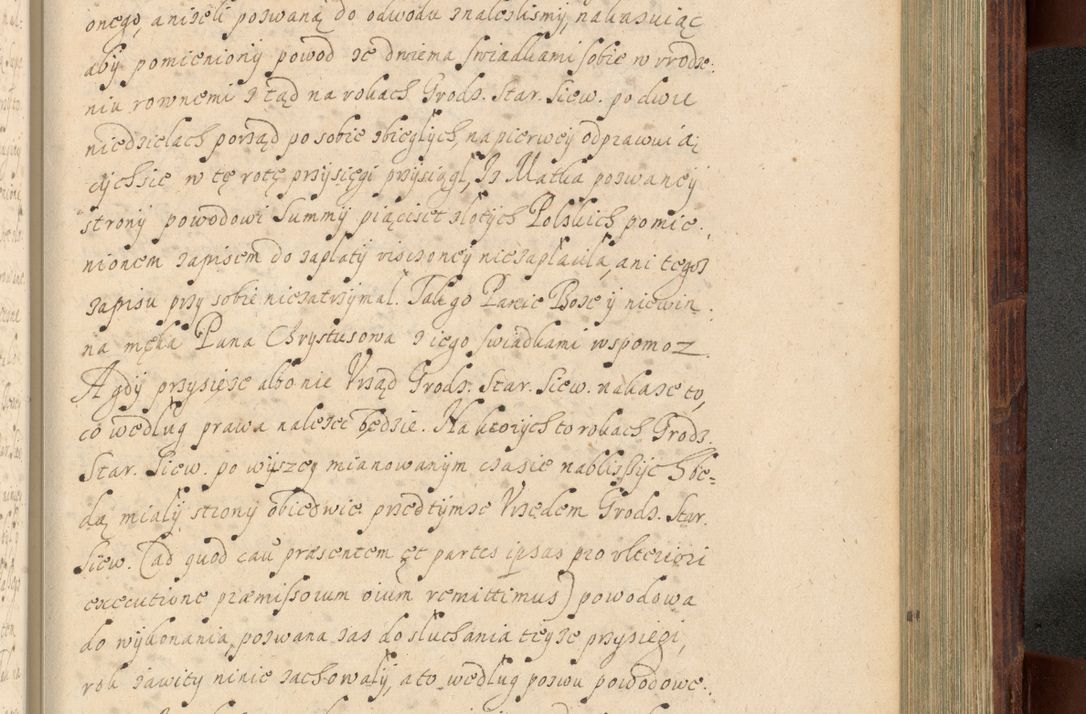 onego, aniżeli pozwaną do odwodu znaleźlismy, nakazuiąc
aby pomieniony powod ze dwiema swiadkami sobie w vrodze:
niu rownemi z tąd na rokach Grodz. Star. Siew. po dwu
niedzielach porząd po sobie zbiegłych, na pierwey odprawuią
cychsie w tę rotę przysięgi przysiągł, Iz Matka pozwaney
strony powodowi Summy piąciset złotych Polskich pomie:
nionem zapisem do zapłaty visczoney niezapłaciła, ani tegoz
zapisu przy sobie niezatrzymał. Tak go Panie Boze y niewin:
na męka Pana Chrystusowa z iego swiadkami wspomoz.
A gdy przysięze albo nie Vrząd Grodz. Star. Siew. nakaze to,
co według prawa nalezec będzie. Na ktorych to rokach Grodz.
Star. Siew. po wyszey mianowanym czasie nablisszych bę=
dą mialy strony obiedwie przed tymze Vrzędem Grodz. Star.
Siew. (ad quod cau præsentem et partes ipsas pro vlteriori
executione præmissorum oium remittimus) powodowa
do wykonania, pozwana zas do słuchania teyze przysiegi,
rok zawity ninie zachowały, a to według pozwu powodowe: